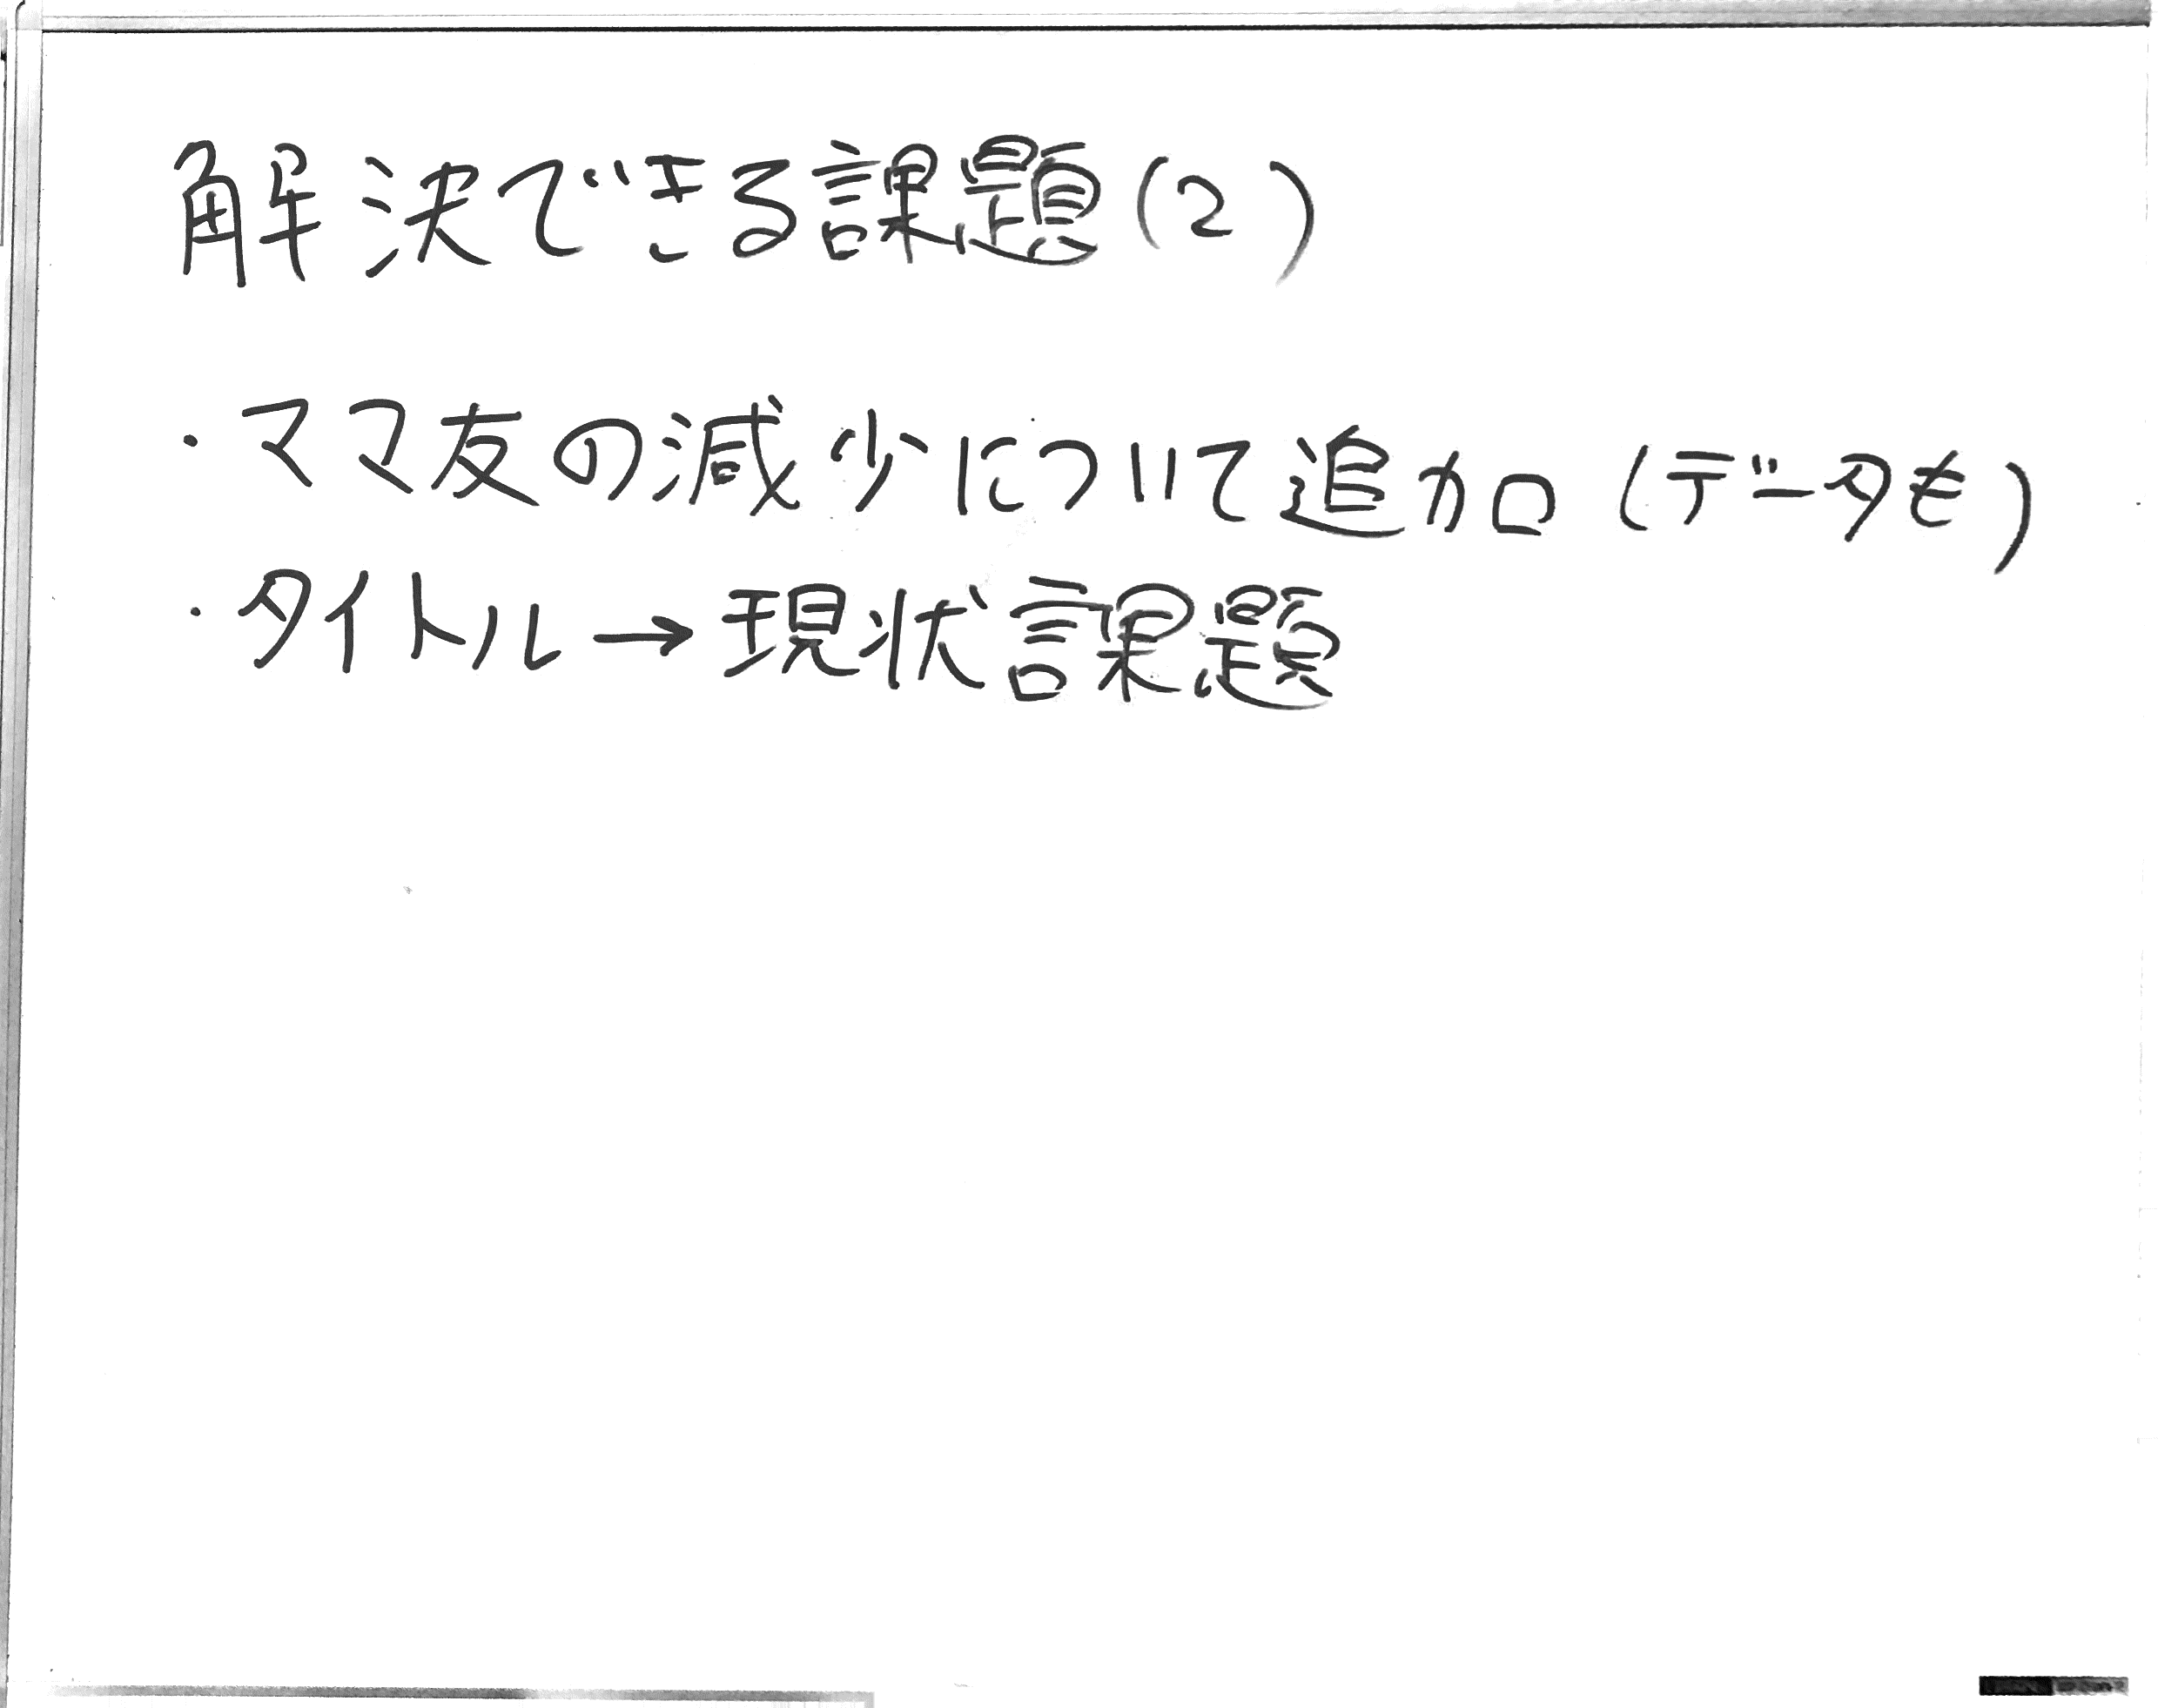 解決できる課題(2)
・ママ友の減少について追加(データも)
・タイトル→現状課題